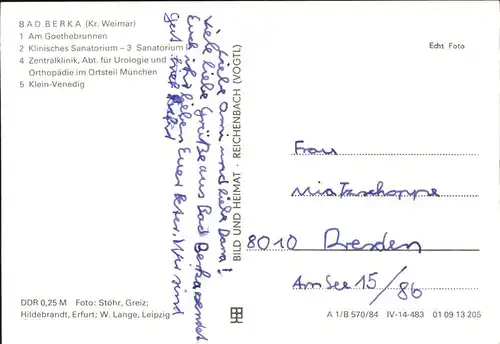 BAD BERKA (Kr. Weimar)
1 Am Goethebrunnen
2 Klinisches Sanatorium – 3 Sanatorium
4 Zentralklinik, Abt. für Urologie und
Orthopädie im Ortsteil München
5 Klein-Venedig
Liebe Omi und liebe Dana!
Viele liebe Grüße aus Bad Berka sendet
Euch ihr lieben Euer Peter. Wir sind
gut
DDR 0,25 M Foto: Stöhr, Greiz;
Hildebrandt, Erfurt; W. Lange, Leipzig
BILD UND HEIMAT · REICHENBACH (VOGTL)
Echt Foto
Frau
8010 Dresden
Am See 15/86
A 1/B 570/84 IV-14-483 01 09 13 205